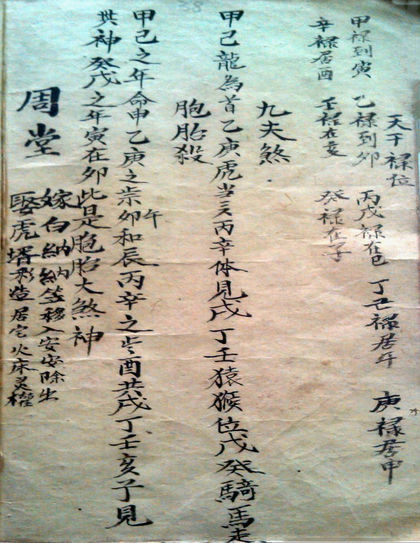 天干禄位
甲禄到寅 乙禄到卯 丙戊禄在巳 丁己禄居午 庚禄居申
辛禄居酉 壬禄在亥 癸禄在子
九夫煞
甲己龍為首乙庚虎当亥丙辛休見戌丁壬猿猴位戊癸騎馬走
胞胎殺
甲己之年命申乙庚之岁卯和辰丙辛之岁酉共戌丁壬亥子見
午
共神癸戊之年寅在卯此是胞胎大煞神
周堂
嫁白納納移入安安除出
娶虎壻造居宅火床灵